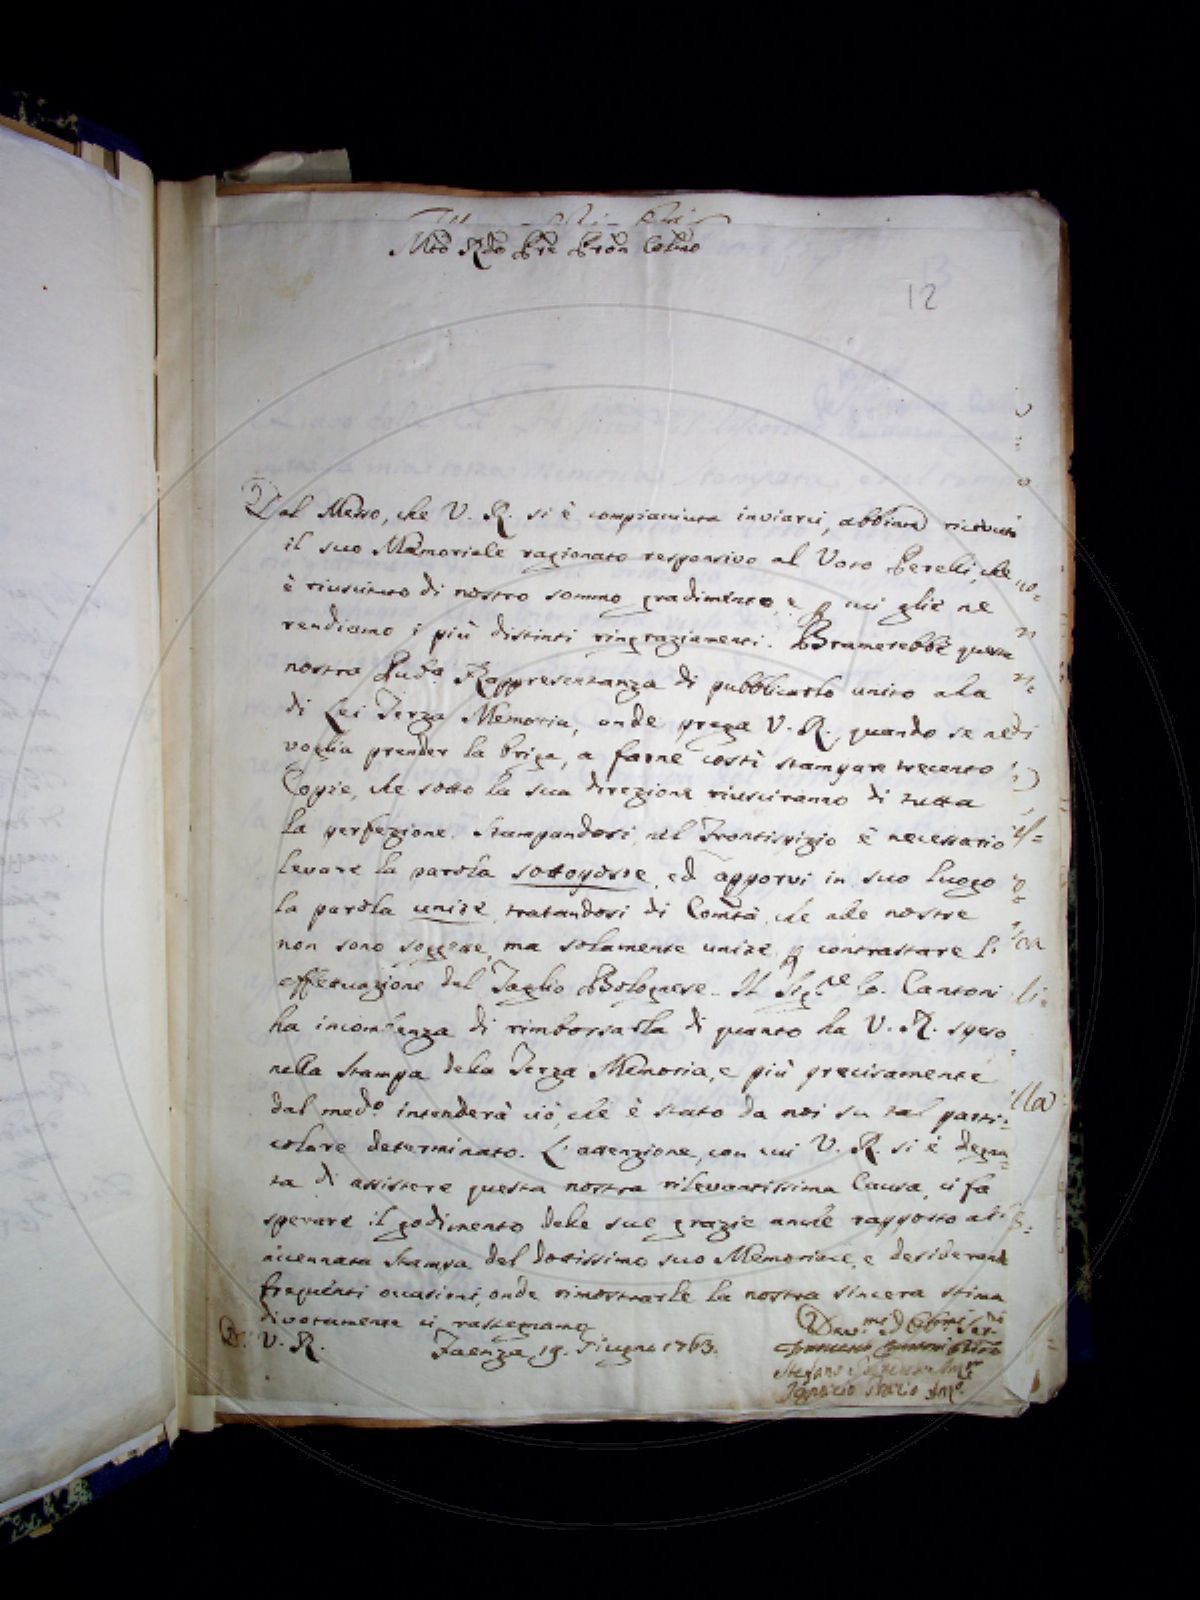 Mto Rdo Pre Pron Colmo
12
Dal Messo, che V. R. si è compiaciuta inviarci, abbiamo ricevuto
il suo Memoriale ragionato responsivo al Voto Perelli, che
è riuscito di nostro sommo gradimento, e p cui glie ne
rendiamo i più distinti ringraziamenti. Bramerebbe questa
nostra Pubca Rappresentanza di pubblicarlo unito alla
di Lei Terza Memoria, onde prega V. R., quando se ne
voglia prender la briga, a farne costì stampare trecento
Copie, che sotto la sua direzione riusciranno di tutta
la perfezione. Stampandosi, nel Frontispizio è necessario
levare la parola sottoposte, ed apporvi in suo luogo
la parola unite, trattandosi di Comtà, che alle nostre
non sono soggette, ma solamente unite p contrastare l'
effettuazione del Taglio Bolognese. Il Sigre C. Cantoni
ha incombenza di rimborsarla di quanto ha V. R. speso
nella Stampa della Terza Memoria, e più precisamente
dal medo intenderà ciò, che è stato da noi su tal parti:
colare determinato. L'attenzione, con cui V. R. si è degna
ta di assistere questa nostra rilevantissima Causa, ci fa
sperare il godimento delle sue grazie anche rapporto all'
accennata Stampa del dottissimo suo Memoriale, e desiderando
frequenti occasioni, onde dimostrarle la nostra sincera stima
divotamente ci rassegniamo
Di V. R. Faenza 19. Giugno 1763.
Devmi ed Obbmi Serri
Cantoni
Stefano Anno
Ignazio Anno